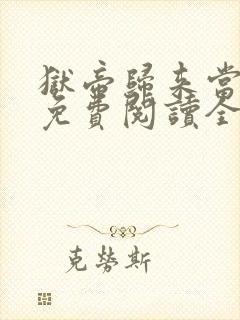 獄帝歸來當
免費閱讀全
克勞斯